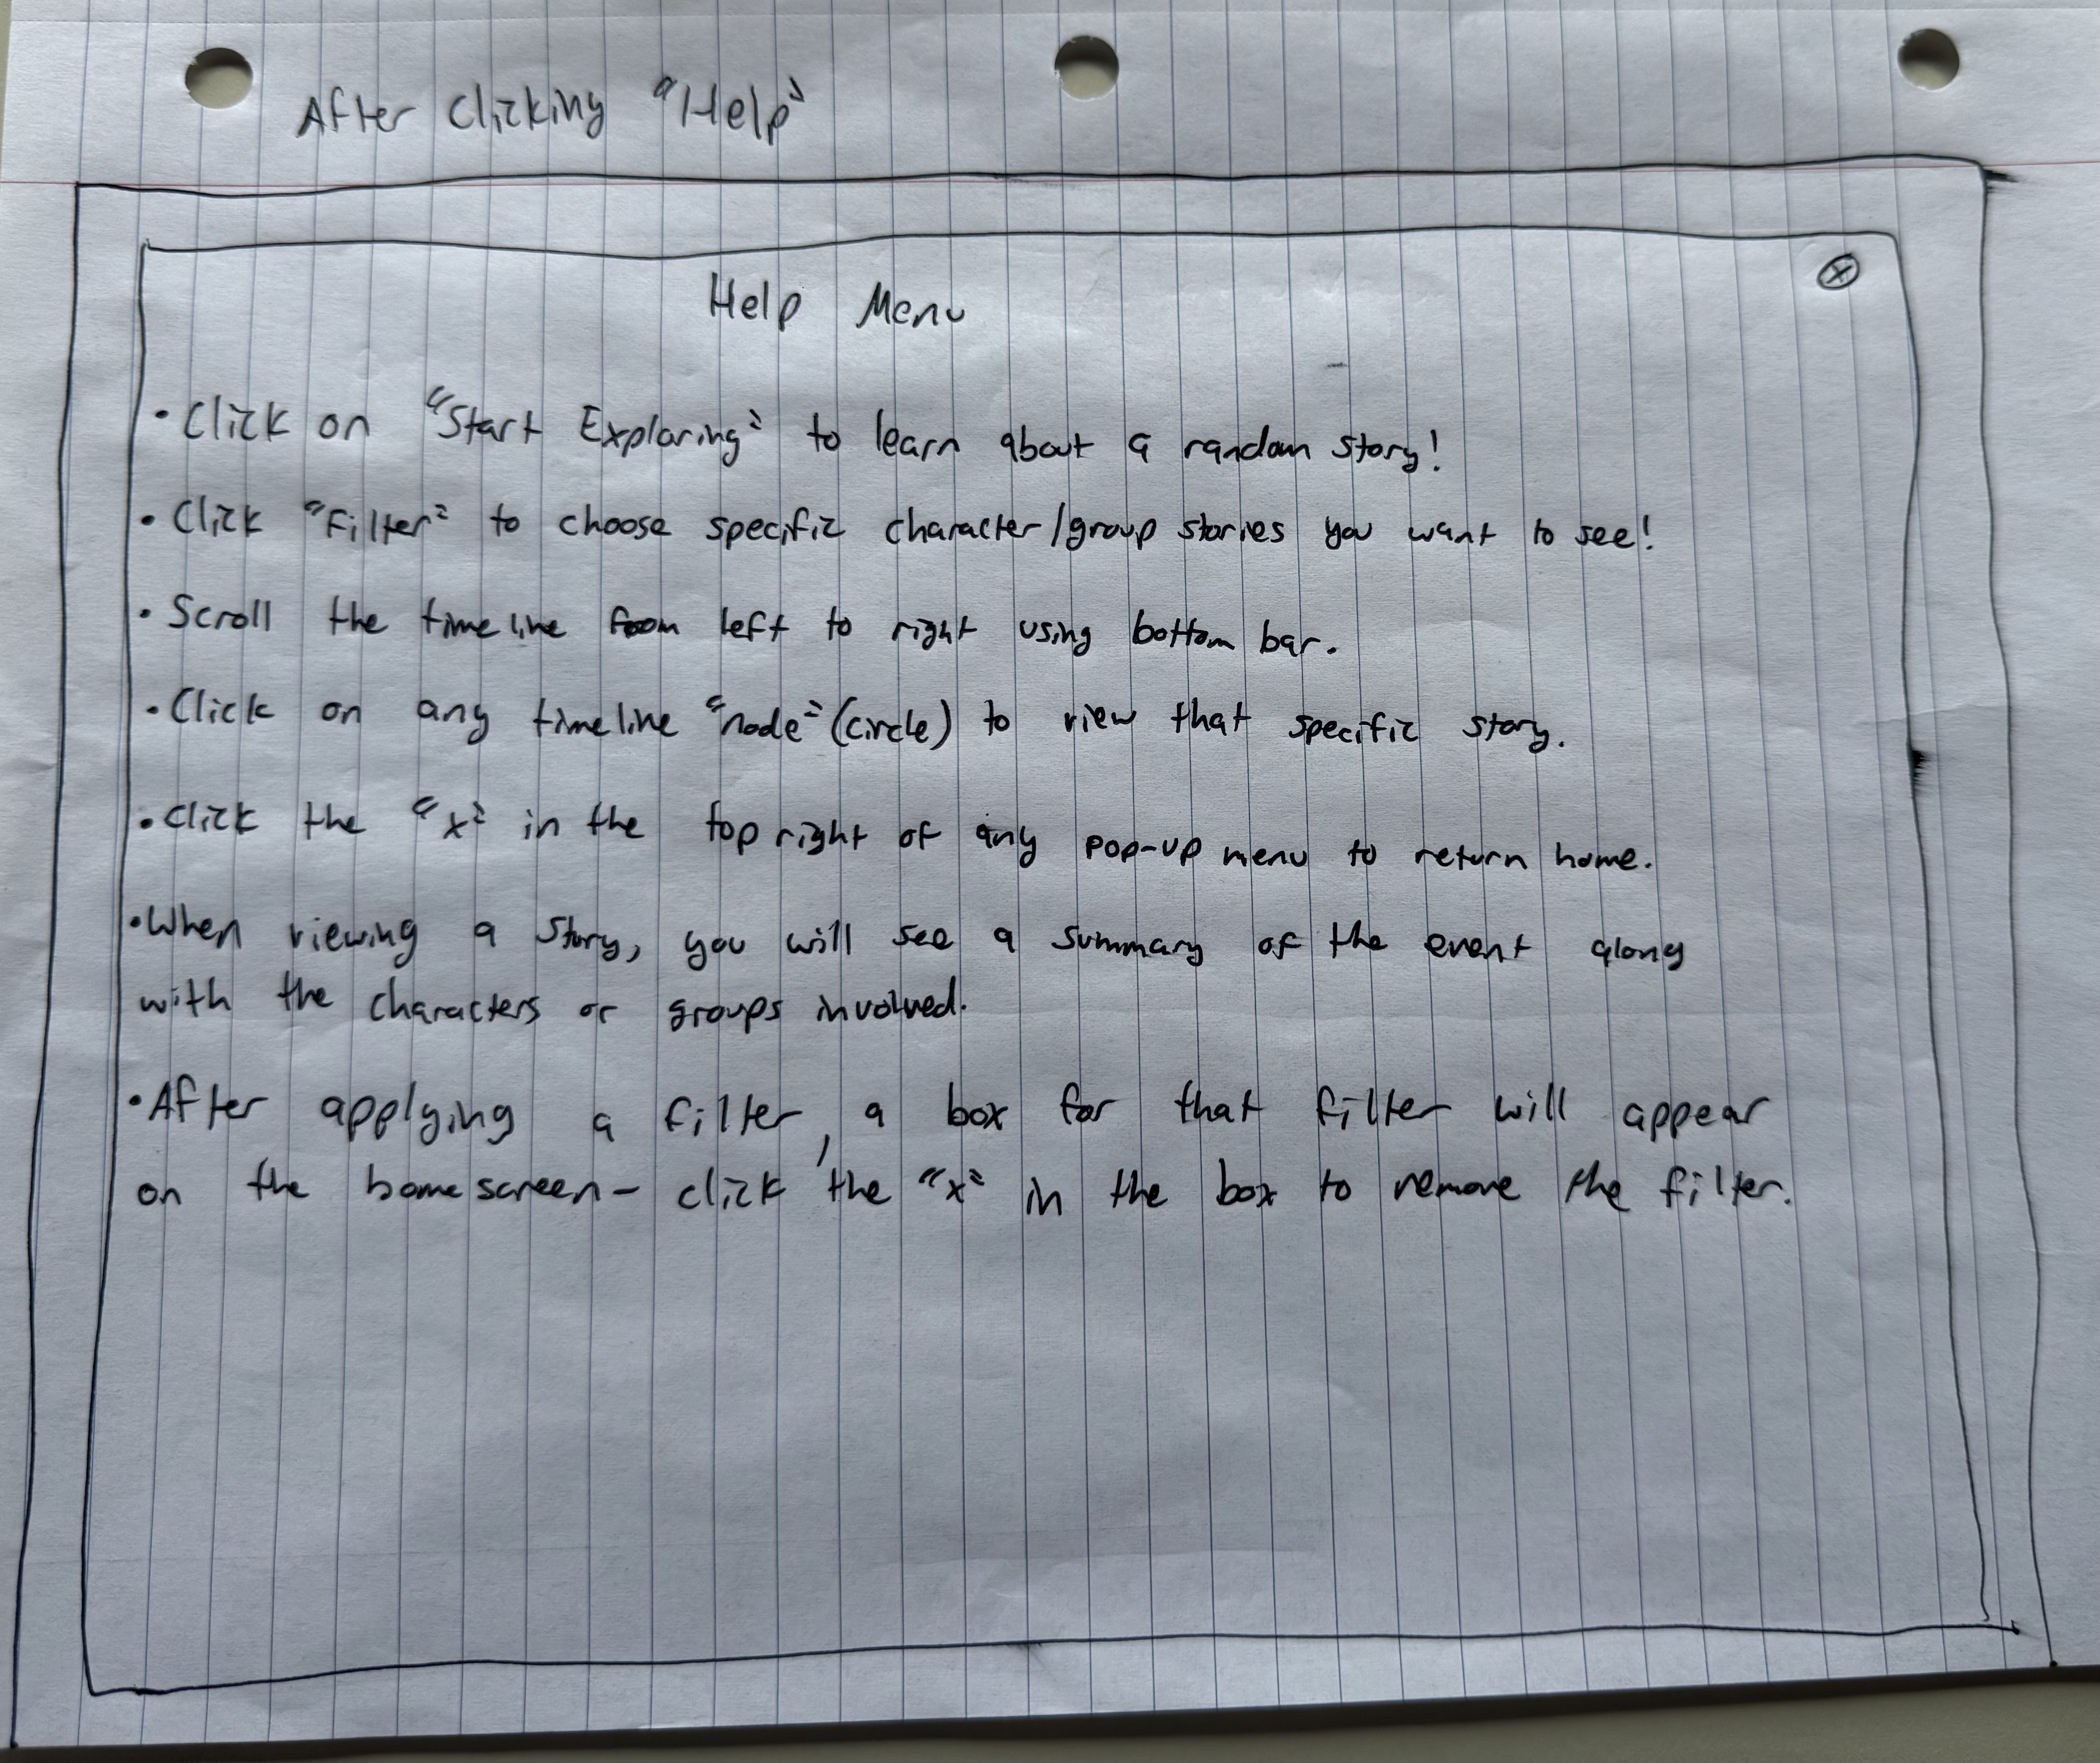 After Clicking "Help"
Help Menu
• Click on "Start Exploring" to learn about a random story!
• Click "Filter" to choose specific character/group stories you want to see!
• Scroll the timeline from left to right using bottom bar.
• Click on any timeline "node" (circle) to view that specific story.
• Click the "x" in the top right of any pop-up menu to return home.
• When viewing a story, you will see a summary of the event along
with the characters or groups involved.
• After applying a filter, a box for that filter will appear
on the homescreen - click the "x" in the box to remove the filter.